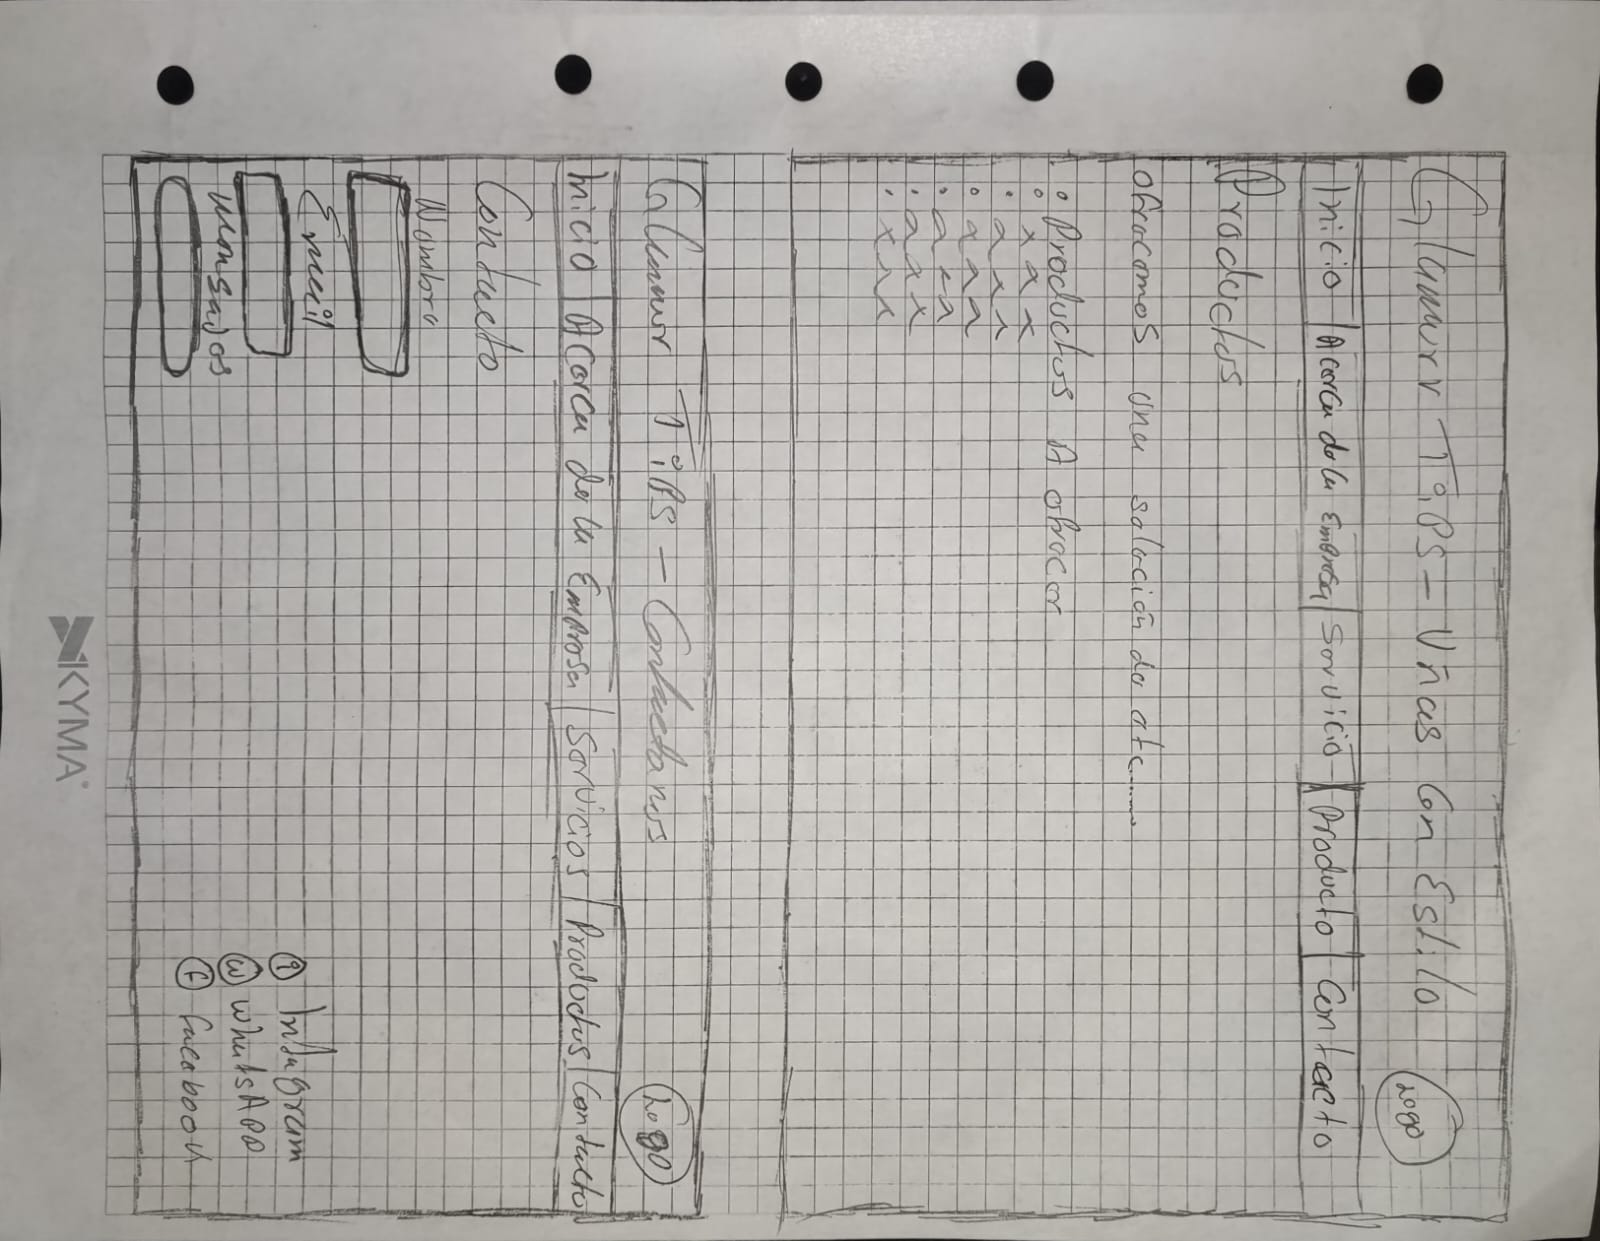 Glamur Tips - Uñas Con Estilo
Logo
Inicio | Acerca de la Empresa | Servicio | Producto | Contacto
Productos
ofrecemos una selección de etc.....
• Productos A ofrecer
• xxx
• xxx
• xxx
• xxx
• xxx
• xxx
Glamur Tips - Contactanos
Logo
Inicio | Acerca de la Empresa | Servicios | Productos | Contacto
Contacto
Nombre
Email
Mensajes
Instagram
W WhatsApp
f facebook
KYMA